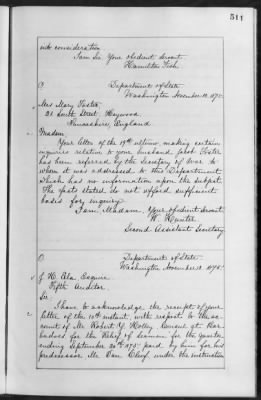 511
into consideration
I am Sir Your obedient servant
Hamilton Fish
Department of State
Washington November 12, 1875.
Mrs Mary Foster
Street, Heywood
Lancashire, England
Madam
Your letter of the 19th ultimo, making certain
inquiries relative to your husband Jacob Foster
has been referred by the Secretary of War to
whom it was addressed to this Department
which has no information upon the subject.
The facts stated do not afford sufficient
basis for inquiry.
I am Madam, Your obedient servant
W. Hunter
Second Assistant Secretary
Department of State
Washington November 13 1875.
J. H. Ela Esquire
Fifth Auditor
Sir
I have to acknowledge the receipt of your
letter of the 10th instant, with respect to the ac-
count of Mr Robert Y. Holley Consul at Bar-
bados for the Relief of Seamen for the quarter
ending September 30th 1875 paid by him for his
predecessor Mr Van Cleef under the instruction